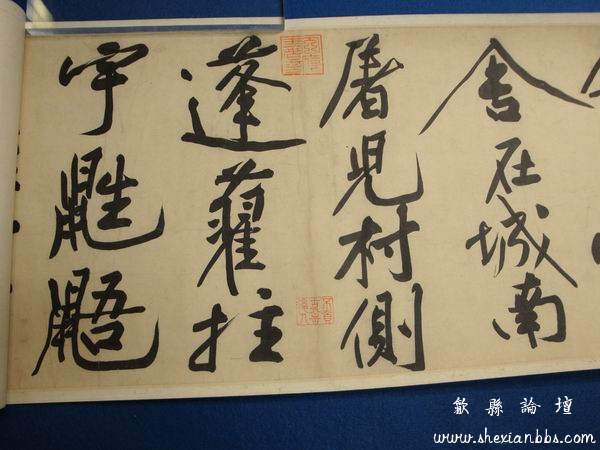 舍在城南
屠兒村側
蓬藋拄
宇鼪鼯
歙縣論壇
www.shexianbbs.com